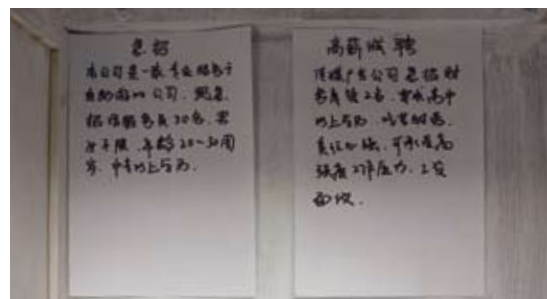 急招
本公司是一家专业服务于
自助游的公司，现急
招服务员30名，男
女不限，年龄20-30周
岁，中专以上学历。
高薪诚聘
传媒广告公司急招财
务2名，要求高中
以上学历，吃苦耐劳，
责任心强，可承受高
强度工作压力，工资
面议。